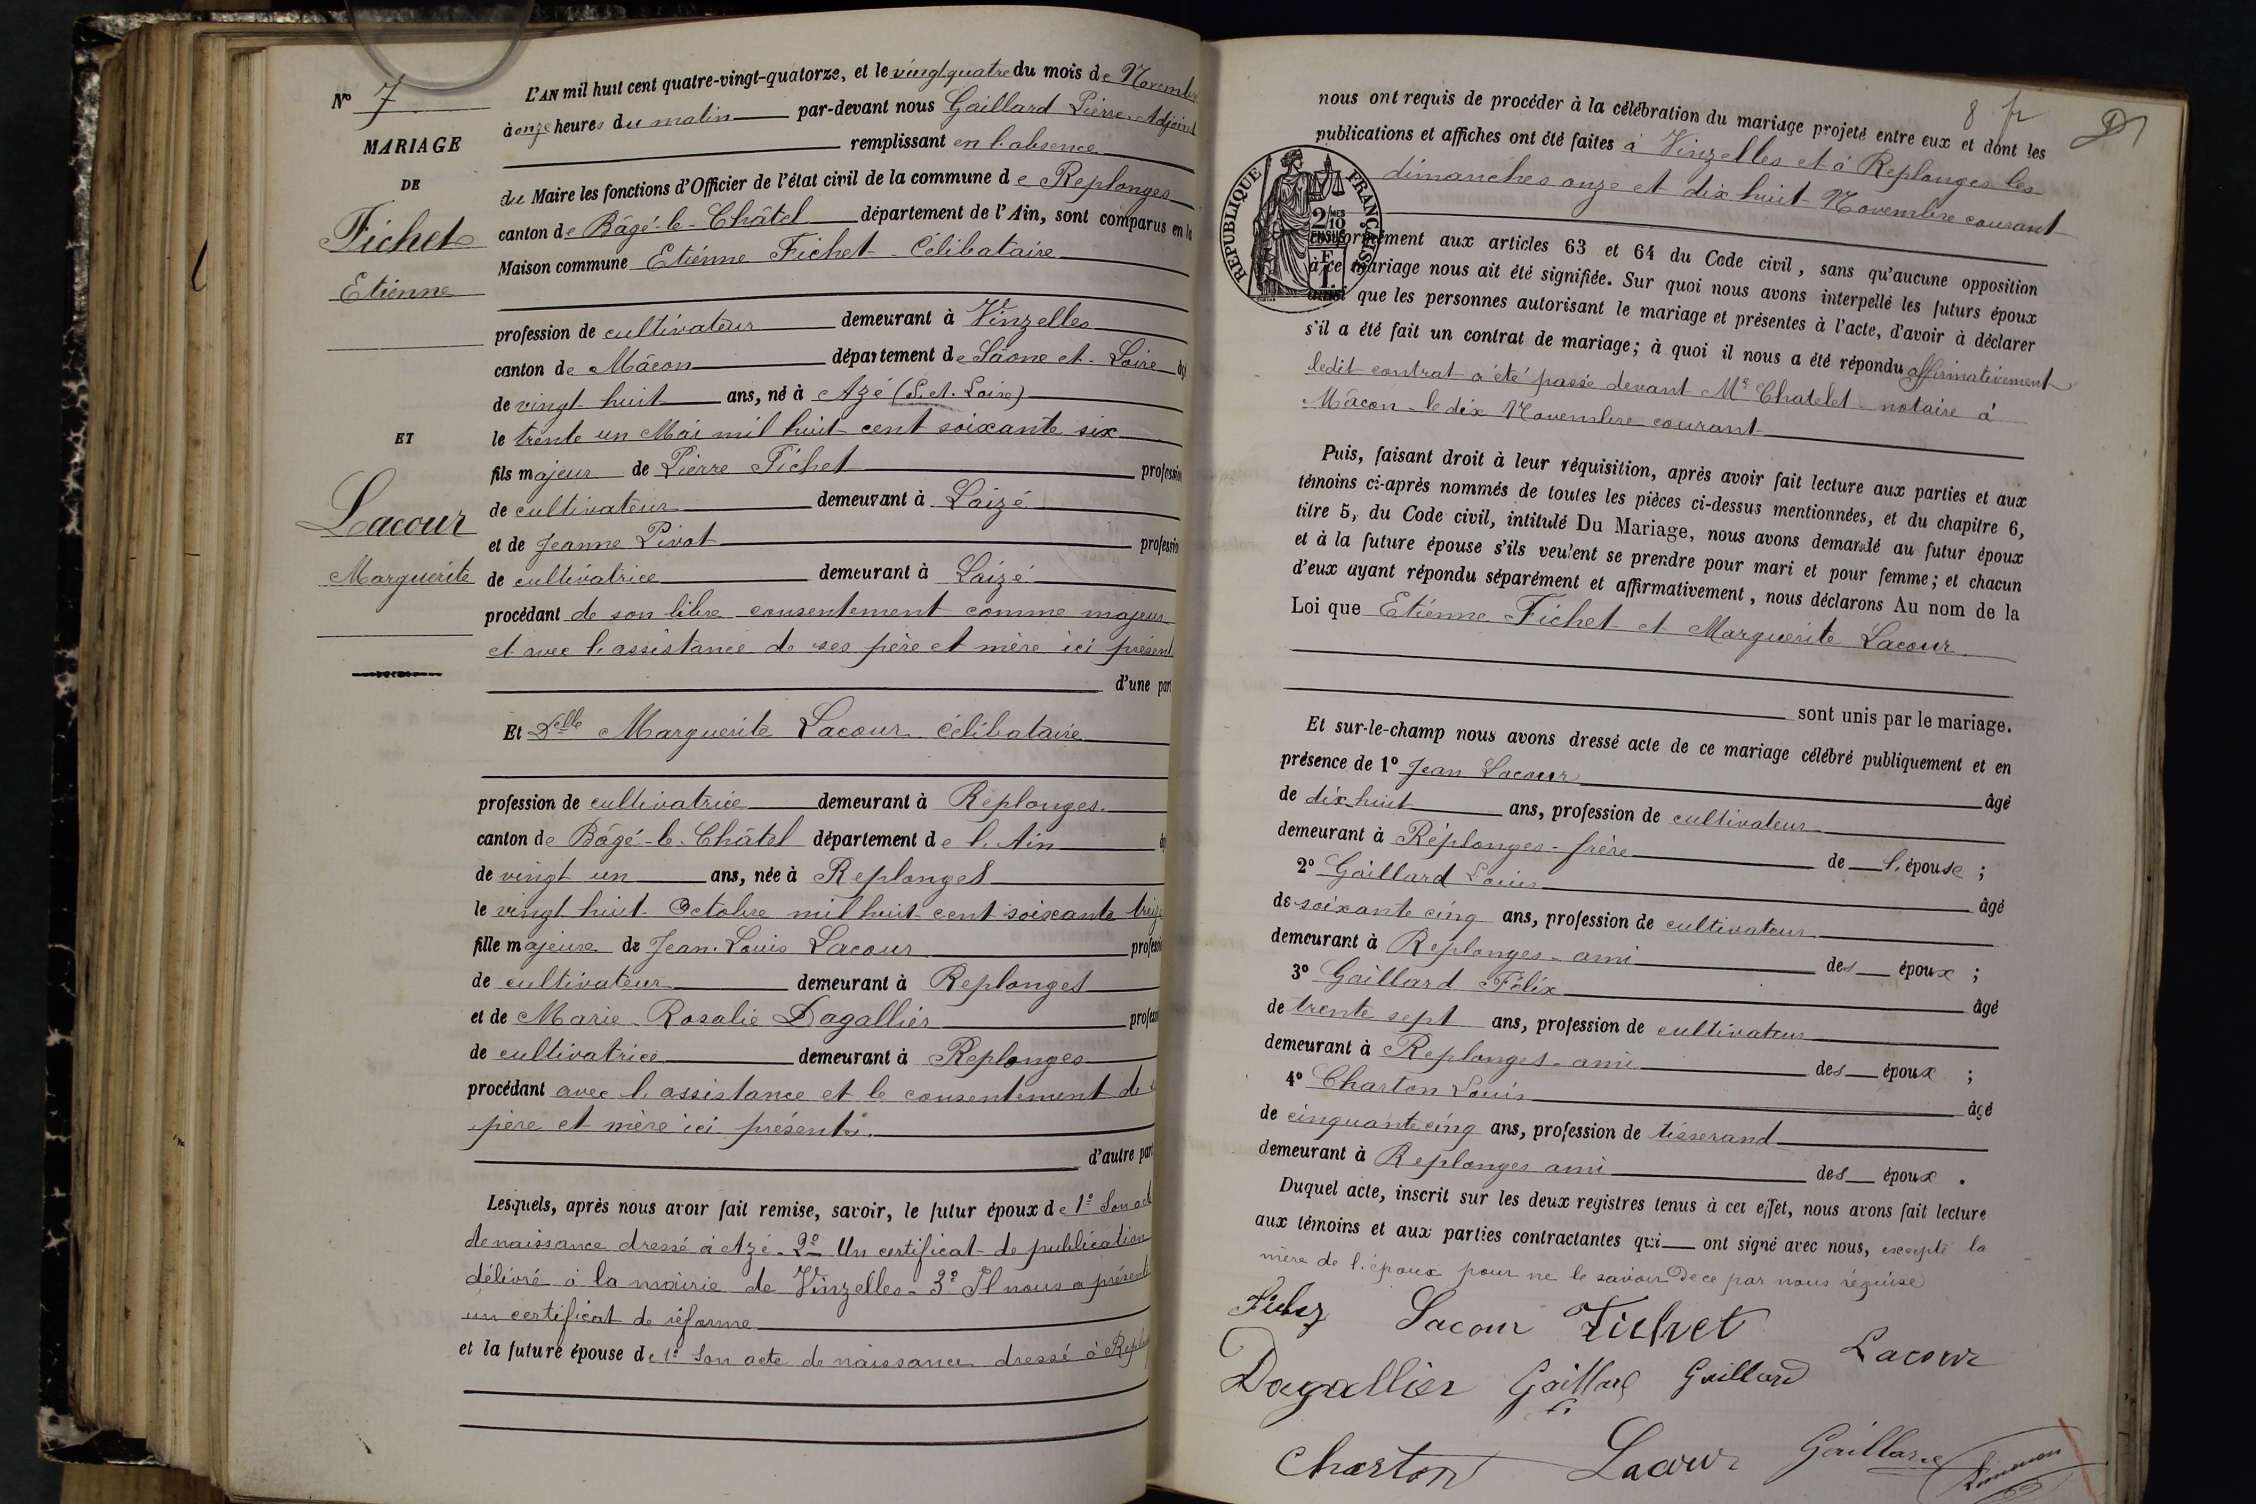 N° 7
MARIAGE
DE
Fichet
Etienne
ET
Lacour
Marguerite
L'AN mil huit cent quatre-vingt-quatorze, et le vingt quatre du mois de Novembre
à onze heures du matin par-devant nous Gaillard Pierre. Adjoint
remplissant en l'absence
du Maire les fonctions d'Officier de l'état civil de la commune de Replonges
canton de Bâgé-le-Châtel département de l'Ain, sont comparus en la
Maison commune Etienne Fichet - Célibataire
profession de cultivateur demeurant à Vinzelles
canton de Mâcon département de Saône et Loire âgé
de vingt huit ans, né à Azé (S. et. Loire)
le trente un Mai mil huit cent soixante six
fils majeur de Pierre Fichet profession
de cultivateur demeurant à Laizé
et de Jeanne Pivot profession
de cultivatrice demeurant à Laizé
procédant de son libre consentement comme majeur
et avec l'assistance de ses père et mère ici présent
d'une part
Et Delle Marguerite Lacour célibataire
profession de cultivatrice demeurant à Replonges.
canton de Bâgé-le-Châtel département de l'Ain
de vingt un ans, née à Replonges
le vingt huit Octobre mil huit cent soixante treize
fille majeure de Jean-Louis Lacour profession
de cultivateur demeurant à Replonges
et de Marie Rosalie Dagallier profession
de cultivatrice demeurant à Replonges
procédant avec l'assistance et le consentement de
père et mère ici présents.
d'autre part
Lesquels, après nous avoir fait remise, savoir, le futur époux de 1° Son acte
de naissance dressé à Azé - 2° Un certificat de publication
délivré à la mairie de Vinzelles - 3° Il nous a présenté
un certificat de réforme
et la future épouse de 1° Son acte de naissance dressé à Replonges
8 fr
nous ont requis de procéder à la célébration du mariage projeté entre eux et dont les
publications et affiches ont été faites à Vinzelles et à Replonges les
dimanches onze et dix huit Novembre courant
RÉPUBLIQUE FRANÇAISE
2/10
EN SUS
conformément aux articles 63 et 64 du Code civil, sans qu'aucune opposition
à ce mariage nous ait été signifiée. Sur quoi nous avons interpellé les futurs époux
ainsi que les personnes autorisant le mariage et présentes à l'acte, d'avoir à déclarer
s'il a été fait un contrat de mariage; à quoi il nous a été répondu affirmativement
ledit contrat a été passé devant Me Chatelet notaire à
Mâcon le dix Novembre courant
Puis, faisant droit à leur réquisition, après avoir fait lecture aux parties et aux
témoins ci-après nommés de toutes les pièces ci-dessus mentionnées, et du chapitre 6,
titre 5, du Code civil, intitulé Du Mariage, nous avons demandé au futur époux
et à la future épouse s'ils veulent se prendre pour mari et pour femme; et chacun
d'eux ayant répondu séparément et affirmativement, nous déclarons Au nom de la
Loi que Etienne Fichet et Marguerite Lacour.
sont unis par le mariage.
Et sur-le-champ nous avons dressé acte de ce mariage célébré publiquement et en
présence de 1° Jean Lacour âgé
de dix huit ans, profession de cultivateur
demeurant à Replonges - frère de l'épouse ;
2° Gaillard Louis âgé
de soixante cinq ans, profession de cultivateur
demeurant à Replonges - ami des époux ;
3° Gaillard Félix âgé
de trente sept ans, profession de cultivateur
demeurant à Replonges - ami des époux ;
4° Charton Louis âgé
de cinquante cinq ans, profession de tisserand
demeurant à Replonges ami des époux .
Duquel acte, inscrit sur les deux registres tenus à cet effet, nous avons fait lecture
aux témoins et aux parties contractantes qui ont signé avec nous, excepté la
mère de l'époux pour ne le savoir de ce par nous requise
Lacour Fichet
Lacour
Dagallier Gaillard Gaillard
Charton Lacour Gaillard